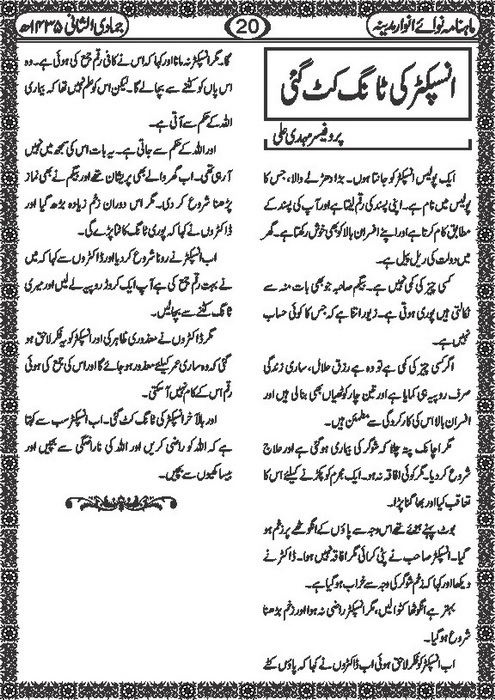 ماہنامہ نوائے انوار مدینہ
20
جمادی الثانی ۱۴۳۵ھ
انسپکٹر کی ٹانگ کٹ گئی
پروفیسر مہدی علی
ایک پولیس انسپکٹر کو جانتا ہوں۔ بڑا دھڑلے والا، جس کا
پولیس میں نام ہے۔ اپنی پسند کی رقم لیتا ہے اور آپ کی پسند کے
مطابق کام کرتا ہے اور اپنے افسران بالا کو بھی خوش رکھتا ہے۔ گھر
میں دولت کی ریل پیل ہے۔
کسی چیز کی کمی نہیں ہے۔ بیگم صاحبہ جو بھی بات منہ سے
نکالتی ہیں پوری ہوتی ہے۔ زیور اتنا ہے کہ جس کا کوئی حساب
نہیں ہے۔
اگر کسی چیز کی کمی ہے تو وہ ہے رزق حلال، ساری زندگی
صرف روپیہ ہی کمایا ہے اور تین چار کوٹھیاں بھی بنالی ہیں اور
افسران بالا اس کی کارکردگی سے مطمئن ہیں۔
مگر اچانک پتہ چلتا کہ شوگر کی بیماری ہو گئی ہے اور علاج
شروع کر دیا۔ مگر کوئی افاقہ نہ ہو۔ ایک مجرم کو پکڑنے کیلئے اس کا
تعاقب کیا اور بھاگنا پڑا۔
بوٹ پہنے ہوئے تھے اس وجہ سے پاؤں کے انگوٹھے پر زخم ہو
گیا۔ انسپکٹر صاحب نے پٹی کرائی مگر افاقہ نہیں ہوا۔ ڈاکٹر نے
دیکھا اور کہا کہ زخم شوگر کی وجہ سے خراب ہو گیا ہے۔
بہتر ہے انگوٹھا کٹوا لیں، مگر انسپکٹر راضی نہ ہوا اور زخم بڑھنا
شروع ہو گیا۔
اب انسپکٹر کو فکر لاحق ہوئی اب ڈاکٹروں نے کہا کہ پاؤں کٹے
گا۔ مگر انسپکٹر نہ مانا اور کہا کہ اس نے کافی رقم جمع کی ہوئی ہے۔ وہ
اس پاں کو کٹنے سے بچالے گا۔ لیکن اس کو علم نہیں تھا کہ بیماری
اللہ کے حکم سے آتی ہے۔
اور اللہ کے حکم سے جاتی ہے۔ یہ بات اس کی سمجھ میں نہیں
آرہی تھی۔ اب گھر والے بھی پریشان تھے اور بیگم نے بھی نماز
پڑھنا شروع کر دی۔ مگر اس دوران زخم زیادہ بڑھ گیا اور
ڈاکٹروں نے کہا کہ پوری ٹانگ کاٹنا پڑے گی۔
اب انسپکٹر نے رونا شروع کر دیا اور ڈاکٹروں سے کہا کہ میں
نے بہت رقم جمع کی ہے آپ ایک کروڑ روپیہ لے لیں اور میری
ٹانگ کٹنے سے بچالیں۔
مگر ڈاکٹروں نے معذوری ظاہر کی اور انسپکٹر کو یہ فکر لاحق ہو
گئی کہ وہ ساری عمر کیلئے معذور ہو جائے گا اور اس کی جمع کی ہوئی
رقم اس کے کام نہیں آسکتی۔
اور بالآخر انسپکٹر کی ٹانگ کٹ گئی۔ اب انسپکٹر سب سے کہتا
ہے کہ اللہ کو راضی کریں اور اللہ کی ناراضگی سے بچیں اور
بیساکھیوں سے بچیں۔